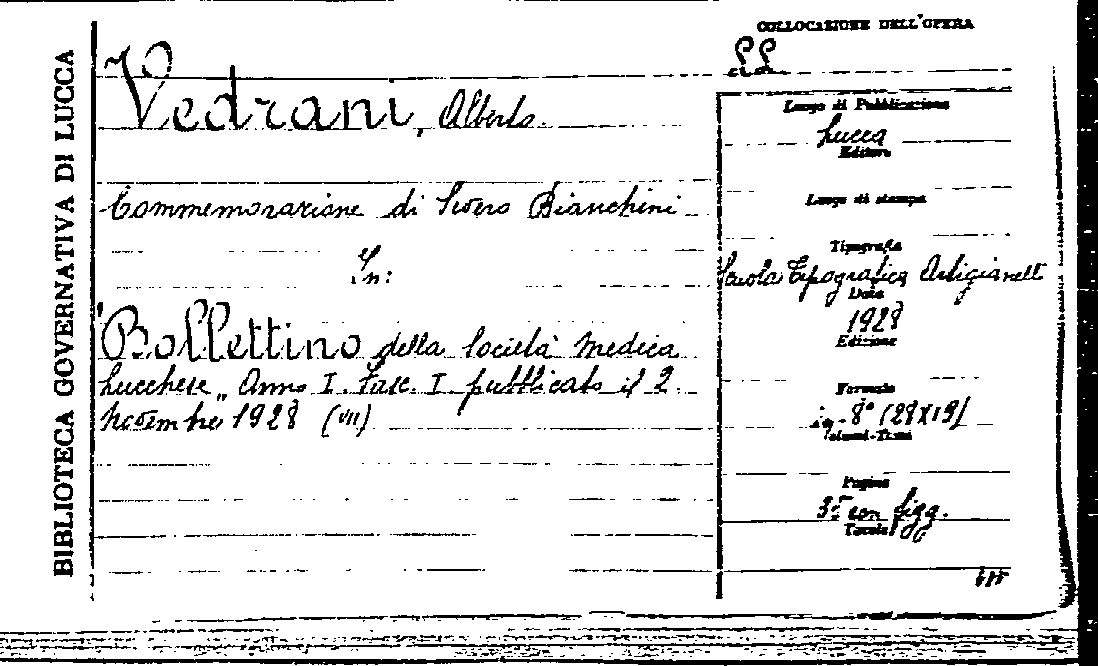 BIBLIOTECA GOVERNATIVA DI LUCCA
Vedrani, Alberto.
Commemorazione di Severo Bianchini
In:
"Bollettino della Società Medica
Lucchese" Anno I. Fasc. I pubblicato il 2
novembre 1928 (VII)
COLLOCAZIONE DELL'OPERA
Luogo di Pubblicazione
Lucca
Editore
Luogo di stampa
Tipografia
Scuola Tipografica Artigianelli
Data
1928
Edizione
Formato
in-8° (28X19)
Volumi-Tomi
Pagine
con figg.
Tavole